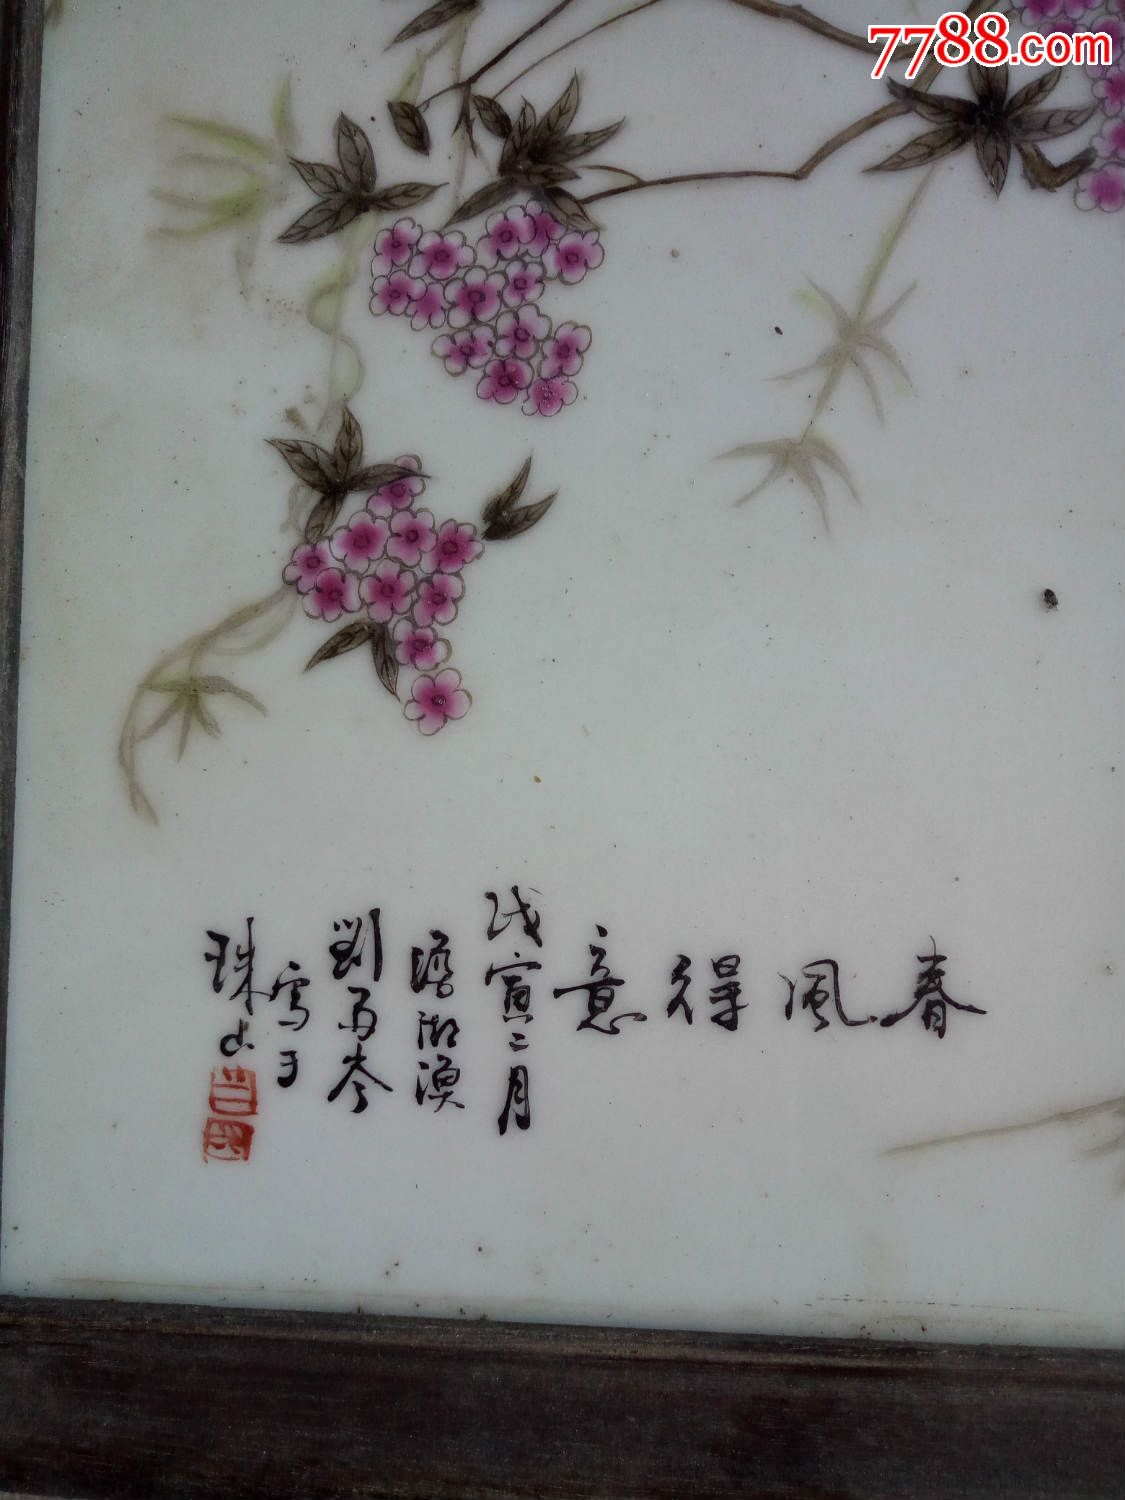 7788.com
春風得意
戊寅二月
澹湖漁
劉雨岑
寫于
珠山